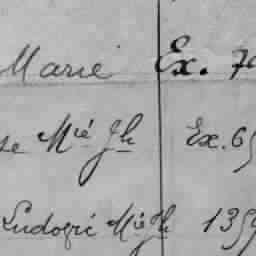 Marie Ex. 70
se Mie Jh Ex. 65
Ludovic Mie Jh 1359